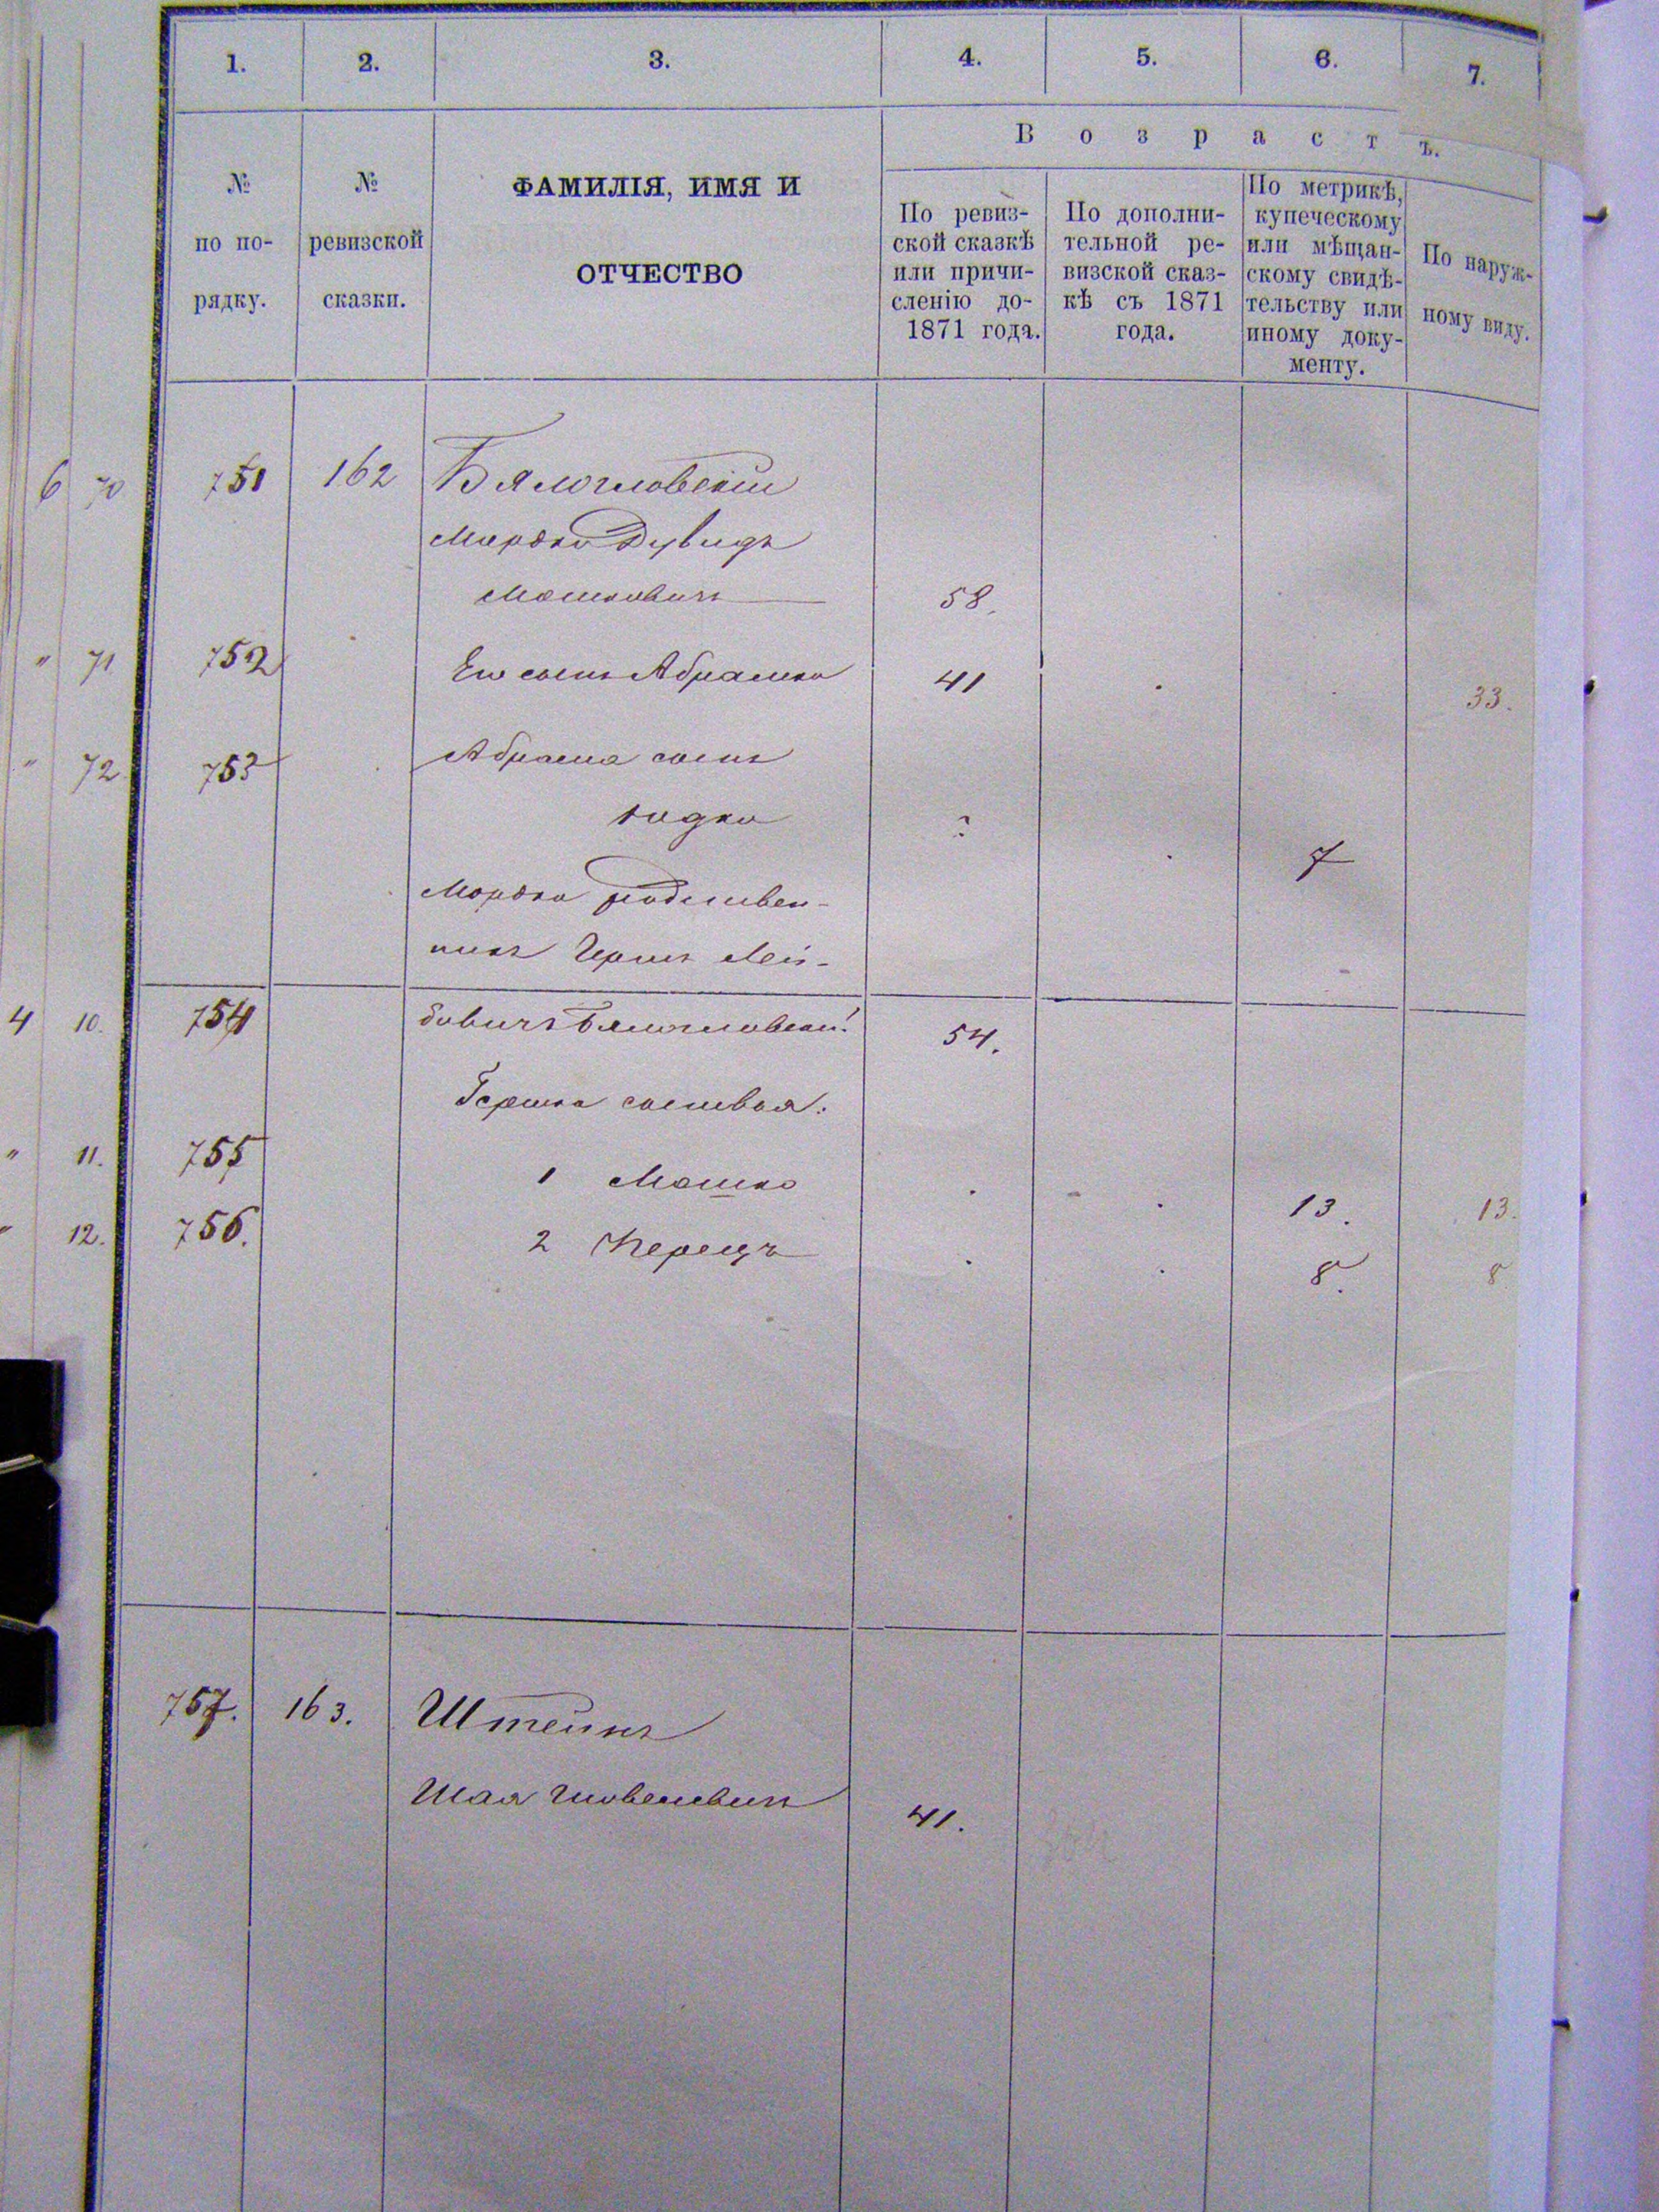 1. 2. 3. 4. 5. 6. 7.
В о з р а с т ъ.
№ по по-рядку.
№ ревизской сказки.
ФАМИЛІЯ, ИМЯ И
ОТЧЕСТВО
По ревиз-
ской сказкѣ
или причи-
сленію до-
1871 года.
По дополни-
тельной ре-
визской сказ-
кѣ съ 1871
года.
По метрикѣ,
купеческому
или мѣщан-
скому свидѣ-
тельству или
иному доку-
менту.
По наруж-
ному виду.
6 70 751 162 Бялогловскій
Мордко Дувидъ
Мошковичъ 58.
" 71 752 Его сынъ Абрамко 41 33.
" 72 753 Абрама сынъ
Юдко ? 7
Мордко родствен-
никъ Герш Лей-
4 10. 754 бовичъ Бялогловскій 54.
Гершка сыновья:
" 11. 755 1 Мошко 13. 13.
" 12. 756. 2 Перецъ 8. 8
757. 163. Штейнъ
Шая 41.